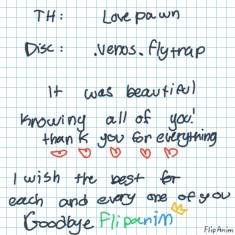 TH: Lovepawn
Disc: .venos.flytrap
It was beautiful
Knowing all of you!
thank you for everything
I wish the best for
each and every one of you
Goodbye Flipanim
FlipAnim